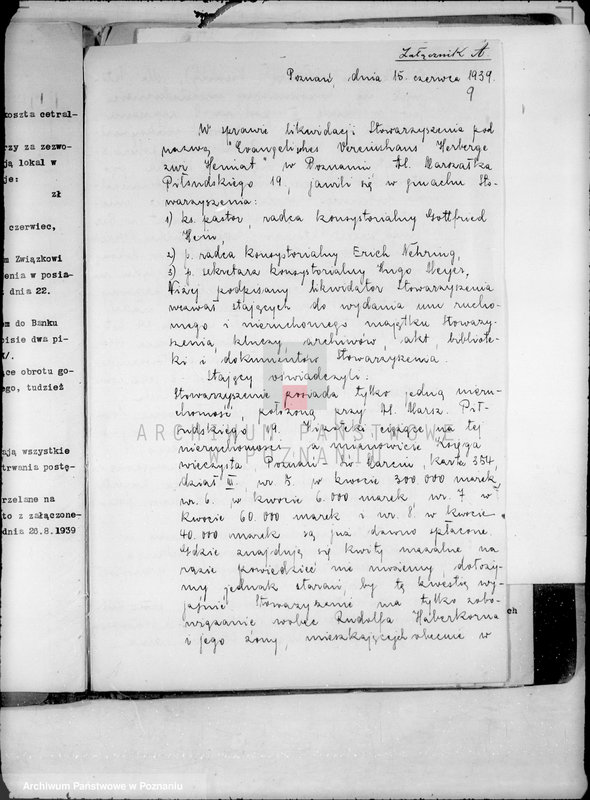 koszta cetral-
rzy za zezwo-
ją lokal w
je:
zł
czerwiec,
m Związkowi
enia w posia-
dnia 22.
em do Banku
pisie dwa pi-
ące obrotu go-
ego, tudzież
ają wszystkie
trwania postę-
rzelane na
to z załączone-
dnia 26.8.1939
Załącznik A
Poznań, dnia 15. czerwca 1939.
9
W sprawie likwidacji Stowarzyszenia pod
nazwą "Evangelisches Vereinshaus Herberge
zur Heimat" w Poznaniu Al. Marszałka
Piłsudskiego 19, jawili się w gmachu Sto-
warzyszenia:
1) ks. pastor, radca konsystorialny Gottfried
Hein,
2) p. radca konsystorialny Erich Nehring,
3) p. sekretarz konsystorialny Hugo Meyer,
Niżej podpisany likwidator Stowarzyszenia
wezwał stających do wydania mu rucho-
mego i nieruchomego majątku Stowarzy-
szenia, kluczy archiwów, akt, bibliote-
ki i dokumentów Stowarzyszenia.
Stający oświadczyli:
Stowarzyszenie posiada tylko jedną nieru-
chomość, położoną przy Al. Marsz. Pił-
sudskiego 19. Hipoteki ciążące na tej
nieruchomości a mianowicie księga
wieczysta Poznań - Św. Marcin, karta 354,
dział III, nr. 5. w kwocie 300.000 marek,
nr. 6. w kwocie 6.000 marek nr. 7 w
kwocie 60.000 marek i nr. 8. w kwocie
40.000 marek są już dawno spłacone.
Gdzie znajdują się kwity mazalne na
razie powiedzieć nie możemy, dołoży-
my jednak starań, by tę kwestię wy-
jaśnić. Stowarzyszenie ma tylko zobo-
wiązanie wobec Rudolfa Haberkorna
i jego żony, mieszkających obecnie w
ch
ARCHIWUM PAŃSTWOWE
W POZNANIU
Archiwum Państwowe w Poznaniu